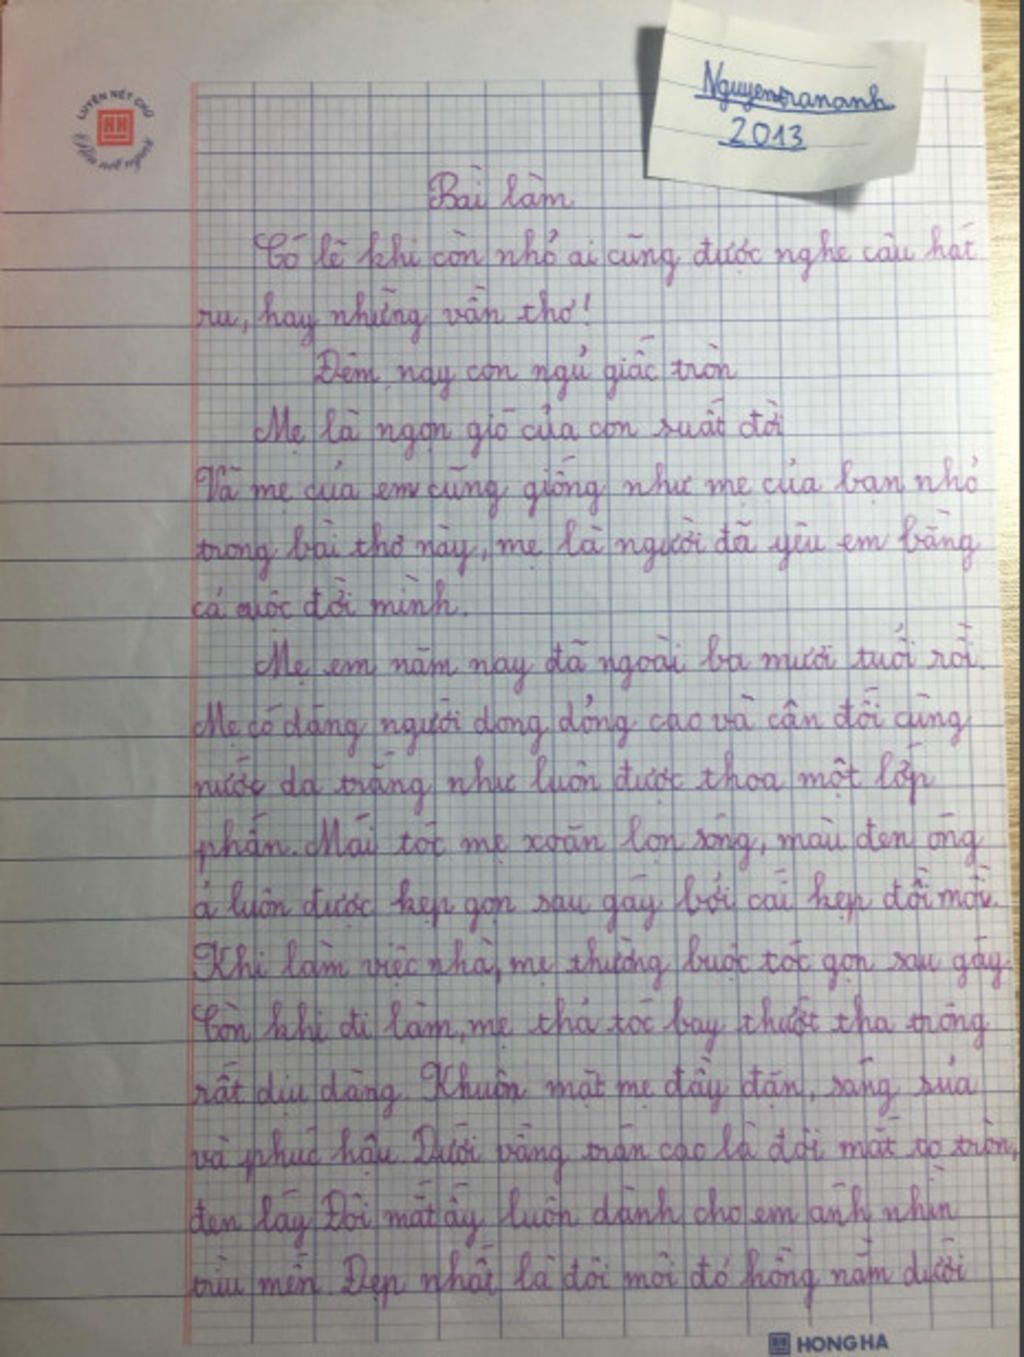 LUYỆN NÉT CHỮ
HH
Rèn nết người
Nguyentrananh
2013
Bài làm
Có lẽ khi còn nhỏ ai cũng được nghe câu hát
ru, hay những vần thơ!
Đêm nay con ngủ giấc tròn
Mẹ là ngọn gió của con suất đời
Và mẹ của em cũng giống như mẹ của bạn nhỏ
trong bài thơ này, mẹ là người đã yêu em bằng
cả cuộc đời mình.
Mẹ em năm nay đã ngoài ba mươi tuổi rồi.
Mẹ có dáng người dong dỏng cao và cân đối cùng
nước da trắng như luôn được thoa một lớp
phấn. Mái tóc mẹ xoăn lọn sóng, màu đen óng
ả luôn được kẹp gọn sau gáy bởi cái kẹp đồi mồi.
Khi làm việc nhà, mẹ thường buộc tóc gọn sau gáy.
Còn khi đi làm, mẹ thả tóc bay thướt tha trông
rất dịu dàng. Khuôn mặt mẹ đầy đặn, sáng sủa
và phúc hậu. Dưới vầng trán cao là đôi mắt to tròn,
đen láy. Đôi mắt ấy luôn dành cho em ánh nhìn
trìu mến. Đẹp nhất là đôi môi đỏ hồng nằm dưới
HH HONG HA